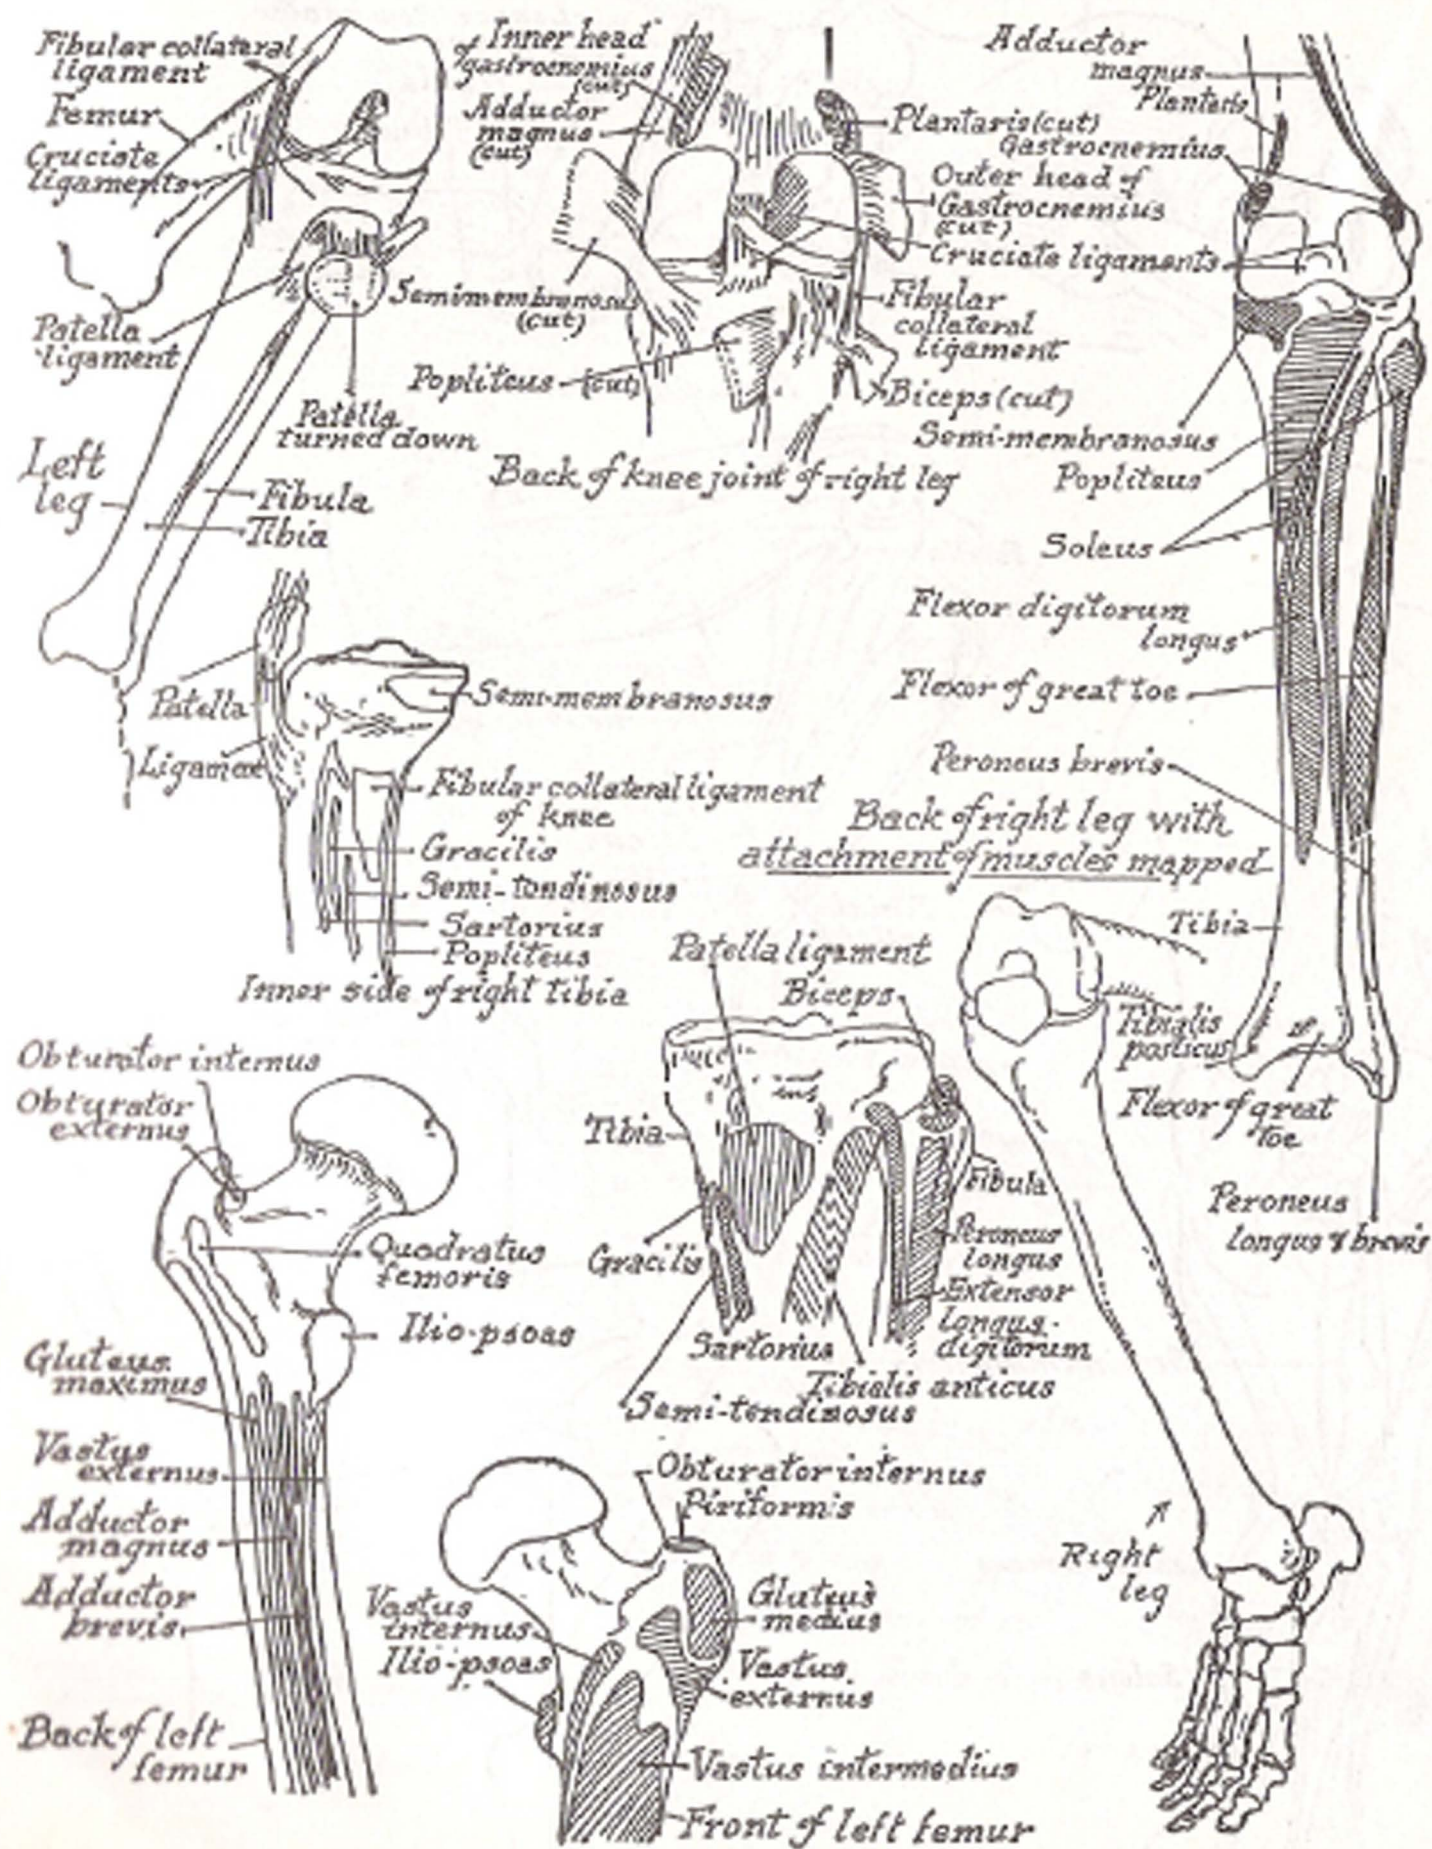 Fibular collateral
ligament
Femur
Cruciate
ligaments
Patella
ligament
Patella
turned down
Left
leg
Fibula
Tibia
Inner head
of gastrocnemius
(cut)
Adductor
magnus
(cut)
Semimembranosus
(cut)
Popliteus (cut)
Plantaris (cut)
Outer head of
Gastrocnemius
(cut)
Cruciate ligaments
Fibular
collateral
ligament
Biceps (cut)
Back of knee joint of right leg
Adductor
magnus
Plantaris
Gastrocnemius
Semi-membranosus
Popliteus
Soleus
Flexor digitorum
longus
Flexor of great toe
Peroneus brevis
Back of right leg with
attachment of muscles mapped
Tibia
Tibialis
posticus
Flexor of great
toe
Peroneus
longus & brevis
Patella
Ligament
Semi-membranosus
Fibular collateral ligament
of knee
Gracilis
Semi-tendinosus
Sartorius
Popliteus
Inner side of right tibia
Patella ligament
Biceps
Tibia
Fibula
Gracilis
Peroneus
longus
Extensor
longus
digitorum
Sartorius
Tibialis anticus
Semi-tendinosus
Obturator internus
Obturator
externus
Quadratus
femoris
Ilio-psoas
Gluteus
maximus
Vastus
externus
Adductor
magnus
Adductor
brevis
Back of left
femur
Obturator internus
Piriformis
Gluteus
medius
Vastus
internus
Ilio-psoas
Vastus
externus
Vastus intermedius
Front of left femur
Right
leg